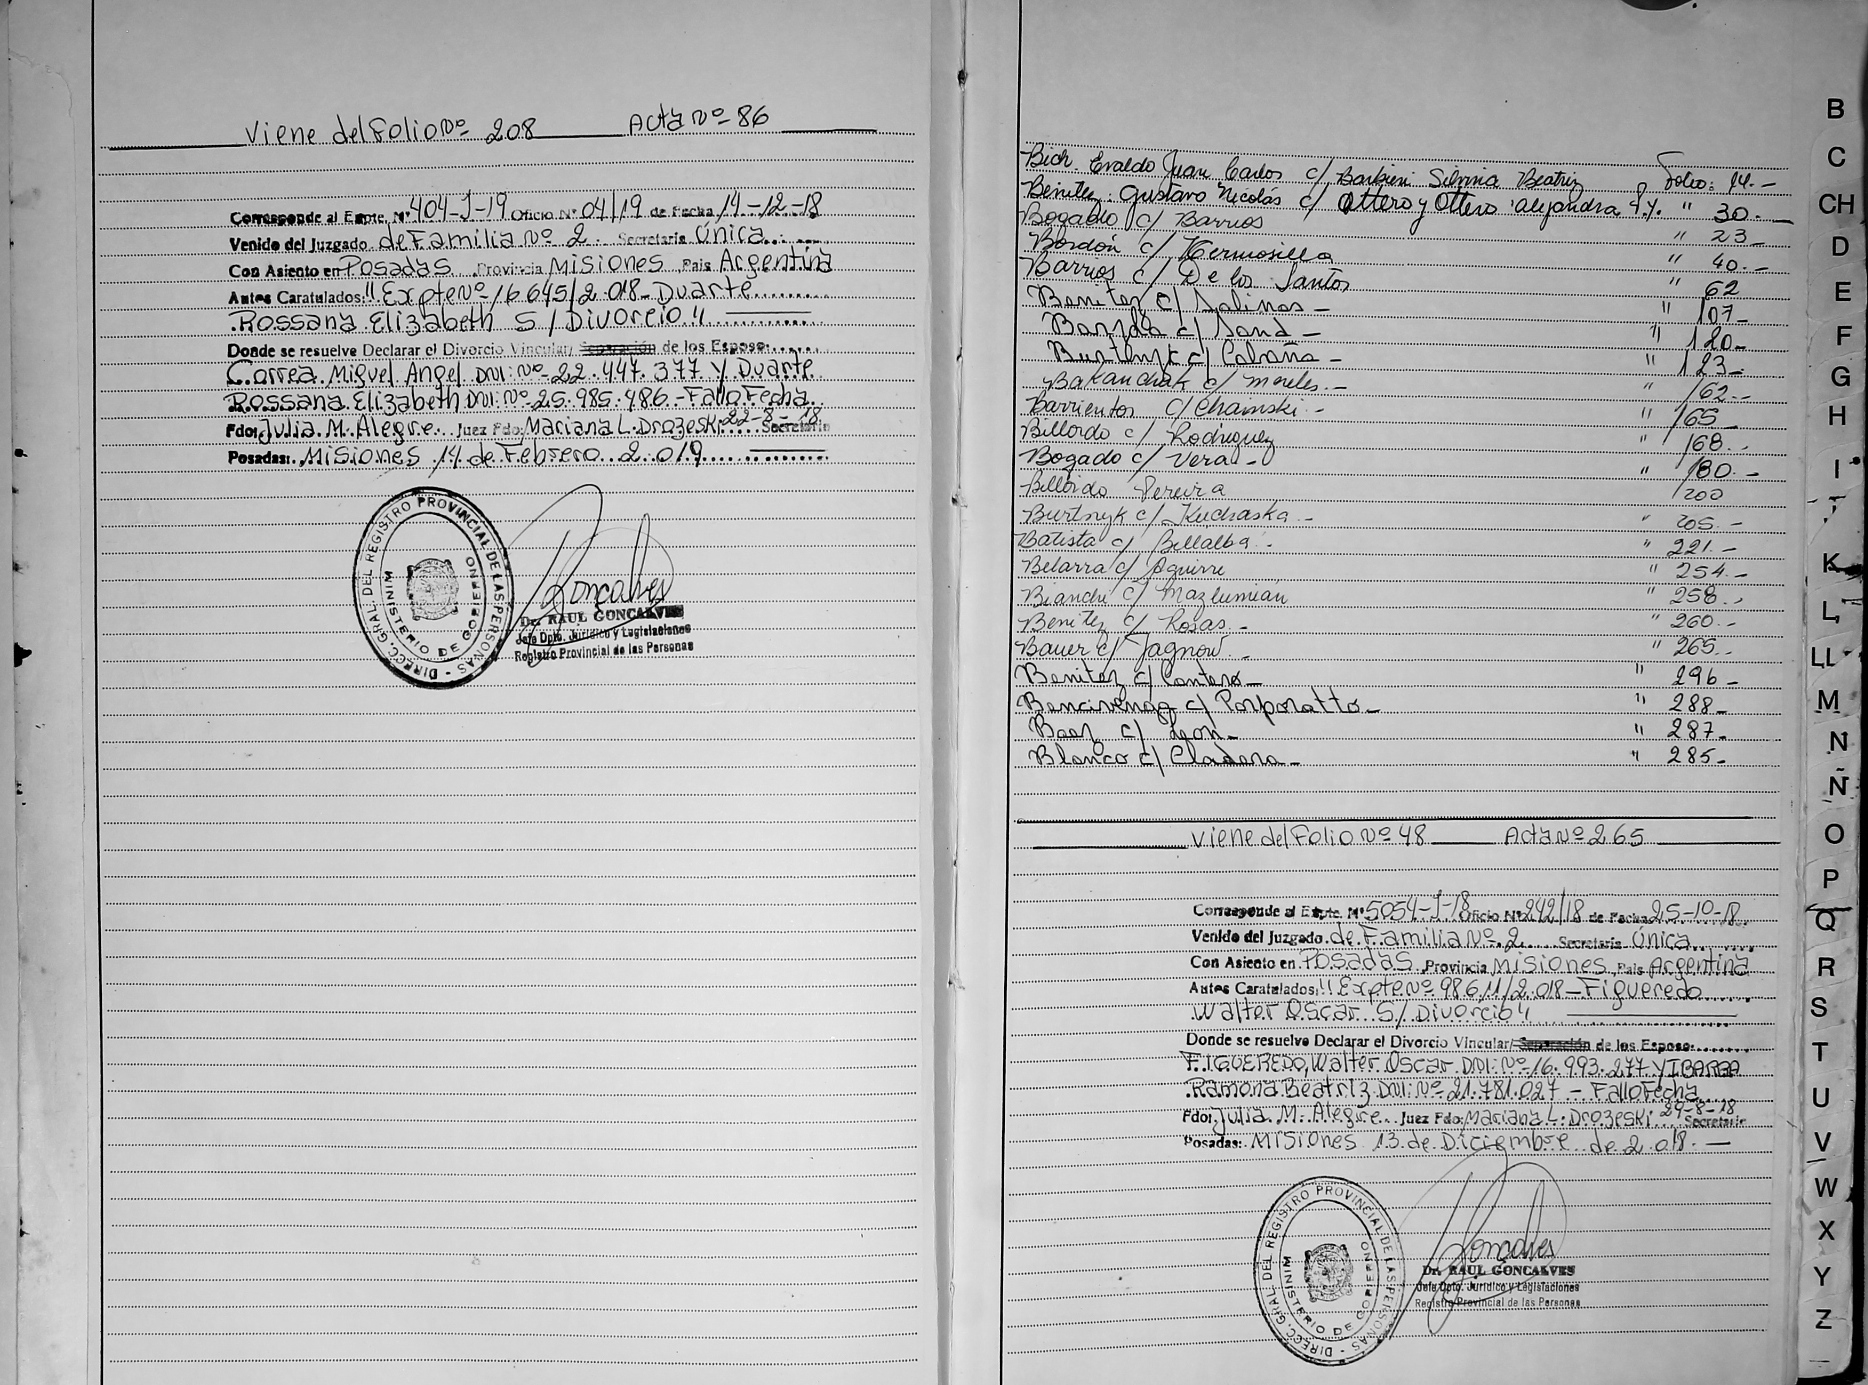 Viene del Folio Nº 208 Acta Nº 86
Corresponde al Expte. Nº 404-J-19 Oficio Nº 04/19 de Fecha 14-12-18
Venido del Juzgado de Familia Nº 2. Secretaria Única
Con Asiento en Posadas Provincia Misiones Pais Argentina
Autos Caratulados: "Expte Nº 16645/2.018- Duarte
Rossana Elizabeth S/Divorcio"
Donde se resuelve Declarar el Divorcio Vincular/ Separación de los Esposo:
Correa Miguel Angel DNI: Nº 22.447.377 Y Duarte
Rossana Elizabeth DNI: Nº 25.985.486.- Fallo Fecha
22-8-18
Fdo: Julia M. Alegre Juez Fdo: Mariana L. Drozeski Secretario
Posadas: Misiones 14 de Febrero 2.019
DIRECC. GRAL. DEL REGISTRO PROVINCIAL DE LAS PERSONAS
MINISTERIO DE GOBIERNO
Goncalves
Dr. RAUL GONCALVES
Jefe Dpto. Jurídico y Legislaciones
Registro Provincial de las Personas
Evaldo Juan Carlos c/ Barbieri Silvina Beatriz Folio: 14.-
Benitez Gustavo Nicolás c/ Ottero y Ottero alejandra " 30.-
Bogado c/ Barrios " 23-
Bordón c/ Hermosilla " 40.-
Barrios c/ De los Santos " 62
Benitez c/ Salinas- " 107-
c/ Sand- " 120-
c/ Cabaña- " 123-
Bakanchak c/ Mereles.- " 162.-
Barrientos c/ Chamski.- " 165-
Billordo c/ Rodriguez " 168.-
Bogado c/ Vera- " 180.-
Billordo Pereira 200
Burtnyk c/ Kucharska.- " 205.-
Batista c/ Billalba.- " 221.-
Belarra c/ Aguirre " 254.-
Bianchi c/ Mazlumian " 258.-
Benitez c/ Rosas.- " 260.-
Bauer c/ Jagnow.- " 265.-
Benitez c/ Cantero- " 296-
Bencivenga c/ Porporatto- " 288-
Baez c/ Leon- " 287-
Blanco c/ Cladera- " 285-
Viene del Folio Nº 48 Acta Nº 265
Corresponde al Expte. Nº 5054-J-18 Oficio Nº 242/18 de Fecha 25-10-18.
Venido del Juzgado de Familia Nº 2 Secretaria Única
Con Asiento en Posadas Provincia Misiones Pais Argentina
Autos Caratulados: "Expte Nº 98611/2.018-Figueredo
Walter Oscar S/Divorcio"
Donde se resuelve Declarar el Divorcio Vincular/ Separación de los Esposo:
FIGUEREDO, Walter Oscar DNI: Nº 16.993.277 Y IBARRA
Ramona Beatriz DNI: Nº 21.781.027 - Fallo Fecha
29-8-18
Fdo: Julia M. Alegre Juez Fdo: Mariana L. Drozeski Secretario
Posadas: Misiones 13 de Diciembre de 2.018.-
DIRECC. GRAL. DEL REGISTRO PROVINCIAL DE LAS PERSONAS
MINISTERIO DE GOBIERNO
Goncalves
Dr. RAUL GONCALVES
Jefe Dpto. Jurídico y Legislaciones
Registro Provincial de las Personas
B
C
CH
D
E
F
G
H
I
K
L
LL
M
N
Ñ
O
P
Q
R
S
T
U
V
W
X
Y
Z